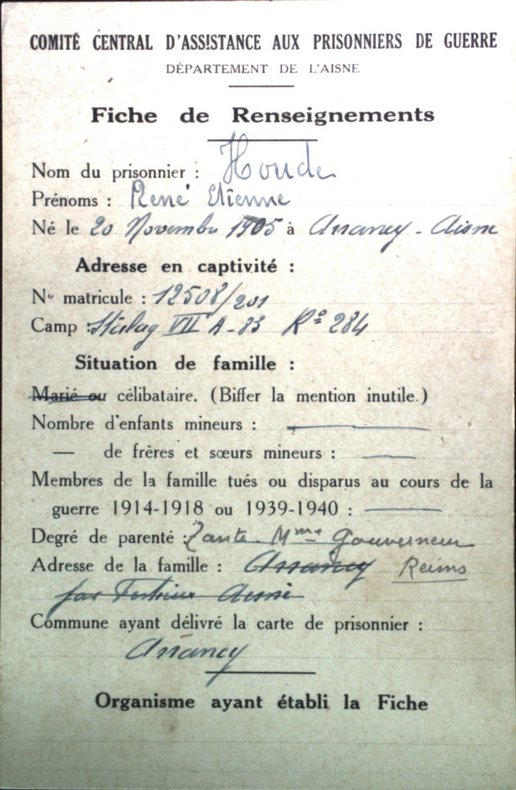 COMITÉ CENTRAL D'ASSISTANCE AUX PRISONNIERS DE GUERRE
DÉPARTEMENT DE L'AISNE
Fiche de Renseignements
Nom du prisonnier : Houde
Prénoms : René Etienne
Né le 20 Novembre 1905 à Arrancy - Aisne
Adresse en captivité :
No matricule : 12508/201
Camp Stalag VII A - 83 Ro 284
Situation de famille :
Marié ou célibataire. (Biffer la mention inutile.)
Nombre d'enfants mineurs :
— de frères et sœurs mineurs :
Membres de la famille tués ou disparus au cours de la
guerre 1914-1918 ou 1939-1940 :
Degré de parenté : Tante Mme Gouverneur
Adresse de la famille : Arrancy Reims
par Festieux Aisne
Commune ayant délivré la carte de prisonnier :
Arrancy
Organisme ayant établi la Fiche